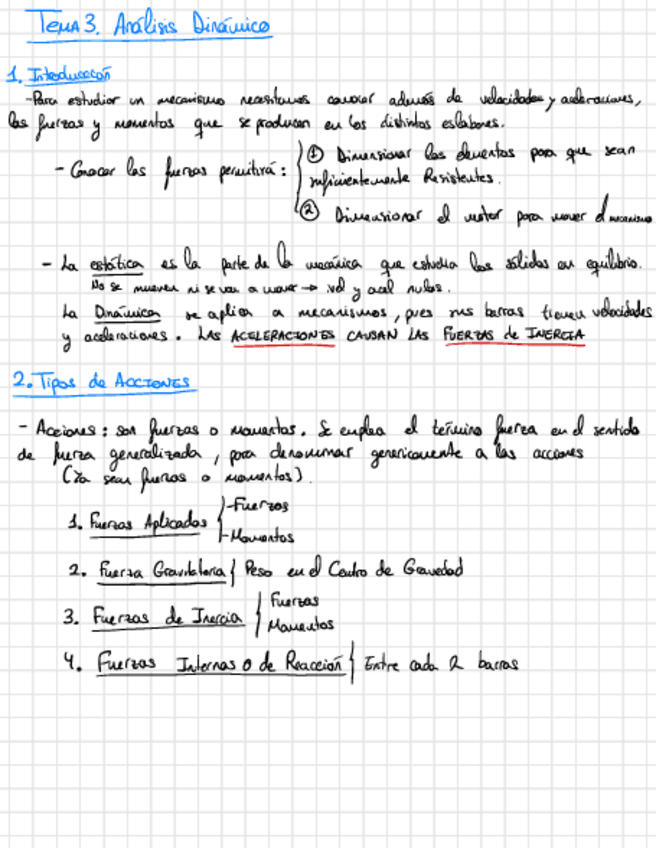 TEMA 3. Análisis Dinámico
1. Introducción
- Para estudiar un mecanismo necesitamos conocer además de velocidades y aceleraciones,
las fuerzas y momentos que se producen en los distintos eslabones.
- Conocer las fuerzas permitirá: ① Dimensionar los elementos para que sean
suficientemente Resistentes.
② Dimensionar el motor para mover el mecanismo
- La estática es la parte de la mecánica que estudia los sólidos en equilibrio.
No se mueven ni se van a mover → vel y acel nulas.
La Dinámica se aplica a mecanismos, pues sus barras tienen velocidades
y aceleraciones. LAS ACELERACIONES CAUSAN LAS FUERZAS de INERCIA
2. Tipos de ACCIONES
- Acciones: son fuerzas o momentos. Se emplea el término fuerza en el sentido
de fuerza generalizada, para denominar genericamente a las acciones
(Ya sean fuerzas o momentos).
1. Fuerzas Aplicadas - Fuerzas
- Momentos
2. Fuerza Gravitatoria Peso en el Centro de Gravedad
3. Fuerzas de Inercia Fuerzas
Momentos
4. Fuerzas Internas o de Reacción Entre cada 2 barras